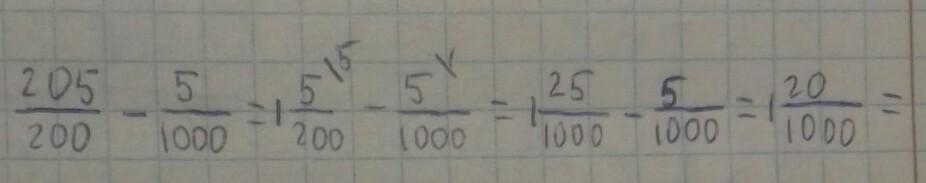 205/200 - 5/1000 = 1 5\5/200 - 5\/1000 = 1 25/1000 - 5/1000 = 1 20/1000 =